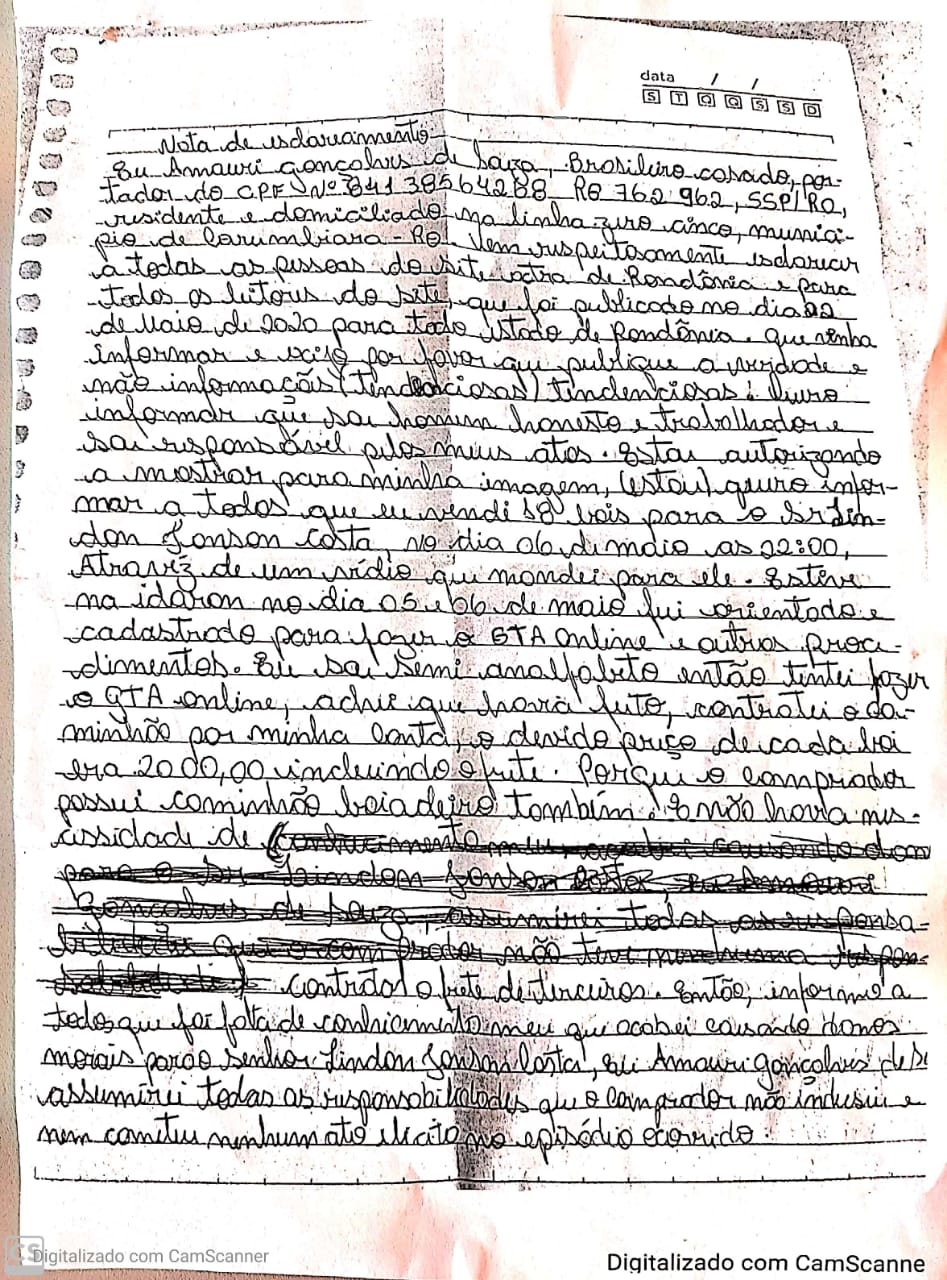 data / /
S T Q Q S S D
Nota de esclarecimento
Eu Amauri Gonçalves de Souza, Brasileiro casado, por-
tador do CPF Nº 84138564288 RG 762962, SSP/RO,
residente e domiciliado na linha zero cinco, municí-
pio de Corumbiara - RO. Vem respeitosamente esclarecer
a todas as pessoas do site extra de Rondônia e para
todos os leitores do site, que foi publicado no dia 22
de Maio de 2020 para todo estado de Rondônia. que venha
informar e exijo por favor que publique a verdade e
não informações (tendenciosas) tendenciosas: quero
informar que sou homem honesto e trabalhador e
sou responsável pelos meus atos. Estou autorizando
a mostrar para minha imagem, (estou) quero infor-
mar a todos que eu vendi 18 bois para o Sr Lin-
don Jonson Costa, no dia 06 de maio as 22:00,
Atravéz de um vídio que mandei para ele. Estive
na idaron no dia 05 e 06 de maio fui orientado e
cadastrado para fazer o GTA Online e outros proce-
dimentos. Eu sou semi analfabeto então tentei fazer
o GTA online, achei que havia feito, contratei o ca-
minhão por minha conta, o devido preço de cada boi
era 2000,00 incluindo o frete. Porque o comprador
possui caminhão boiadeiro também. E não havia nes-
cessidade de (conhecimento meu, acabei causando dan
para o Sr. Lindon Jonson Costa, eu Amauri
Gonçalves de Souza, assumirei todas as responsa-
bilidades que o comprador não tive nenhuma respon-
sabilidade) contratar o frete de terceiros. Então, informo a
todos que foi falta de conhecimento meu que acabei causando danos
morais para o senhor Lindon Jonson Costa, eu Amauri gonçalves de S
assumirei todas as responsabilidades que o comprador não e
nem cometeu nenhum ato ilicito no episódio ocorrido.
CS Digitalizado com CamScanner
Digitalizado com CamScanne